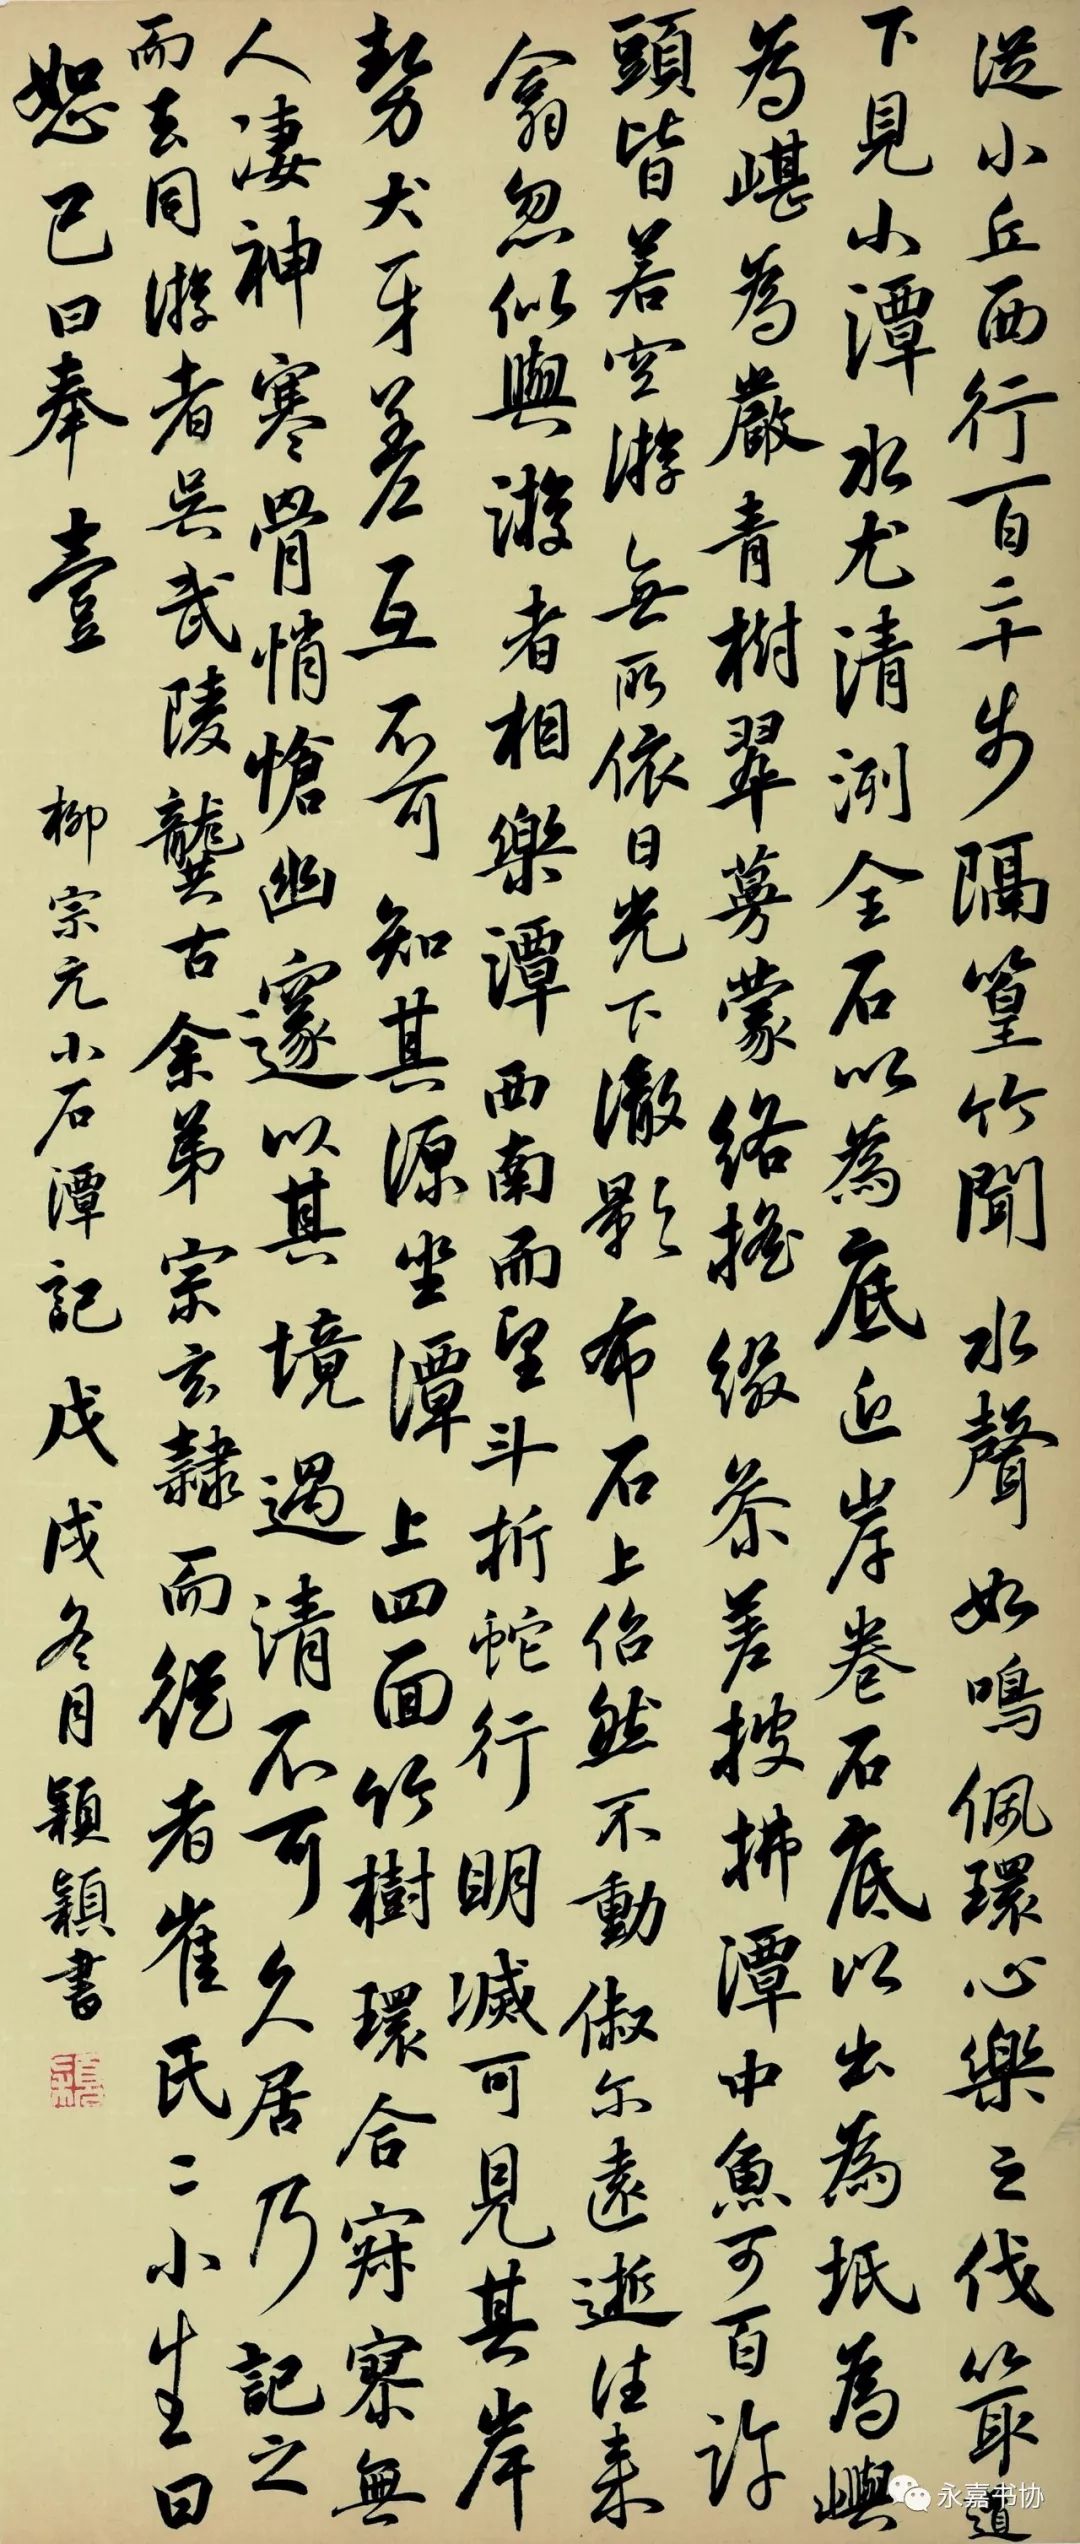 從小丘西行百二十步隔篁竹聞水聲如鳴佩環心樂之伐竹取道
下見小潭水尤清洌全石以為底近岸卷石底以出為坻為嶼
為嵁為巖青樹翠蔓蒙絡搖綴參差披拂潭中魚可百許
頭皆若空游無所依日光下澈影布石上佁然不動俶尔遠逝往来
翕忽似與游者相樂潭西南而望斗折蛇行明滅可見其岸
勢犬牙差互不可知其源坐潭上四面竹樹環合寂寥無
人淒神寒骨悄愴幽邃以其境過清不可久居乃記之
而去同游者吳武陵龔古余弟宗玄隸而從者崔氏二小生曰
恕己曰奉壹
柳宗元小石潭記戊戌冬月穎穎書
永嘉书协